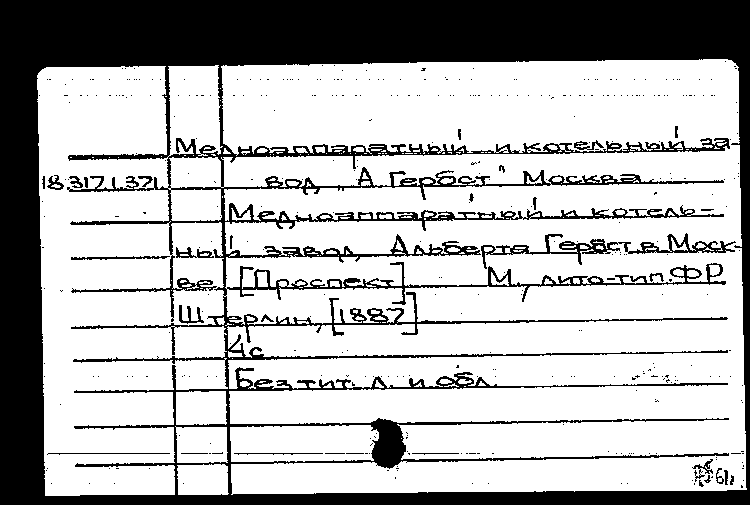 Медноаппаратный и котельный за-
18.317.1.371. вод „А. Гербст" Москва
Медноаппаратный и котель-
ный завод Альберта Гербст в Моск-
ве [Проспект] М., лито-тип. Ф.Р.
Штерлин, [1887]
4с
Без тит. л. и обл.
61